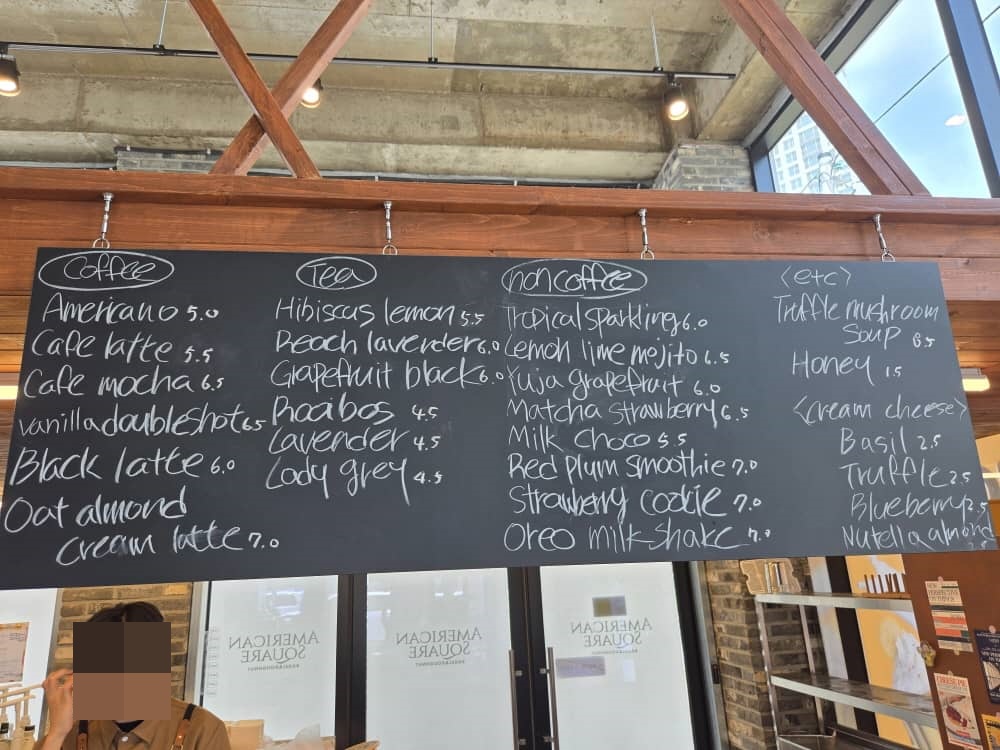 Coffee
Americano 5.0
Cafe latte 5.5
Cafe mocha 6.5
Vanilla doubleshot 6.5
Black latte 6.0
Oat almond
cream latte 7.0
Tea
Hibiscus lemon 5.5
Peach lavender 6.0
Grapefruit black 6.0
Rooibos 4.5
Lavender 4.5
Lady grey 4.5
noncoffee
Tropical sparkling 6.0
Lemon lime mojito 6.5
Yuja grapefruit 6.0
Matcha strawberry 6.5
Milk Choco 5.5
Red plum smoothie 7.0
Strawberry cookie 7.0
Oreo milk shake 7.0
<etc>
Truffle mushroom
Soup 6.5
Honey 1.5
<cream cheese>
Basil 2.5
Truffle 2.5
Blueberry 2.5
Nutella almond
2.5
AMERICAN
SQUARE
AMERICAN
SQUARE
AMERICAN
SQUARE